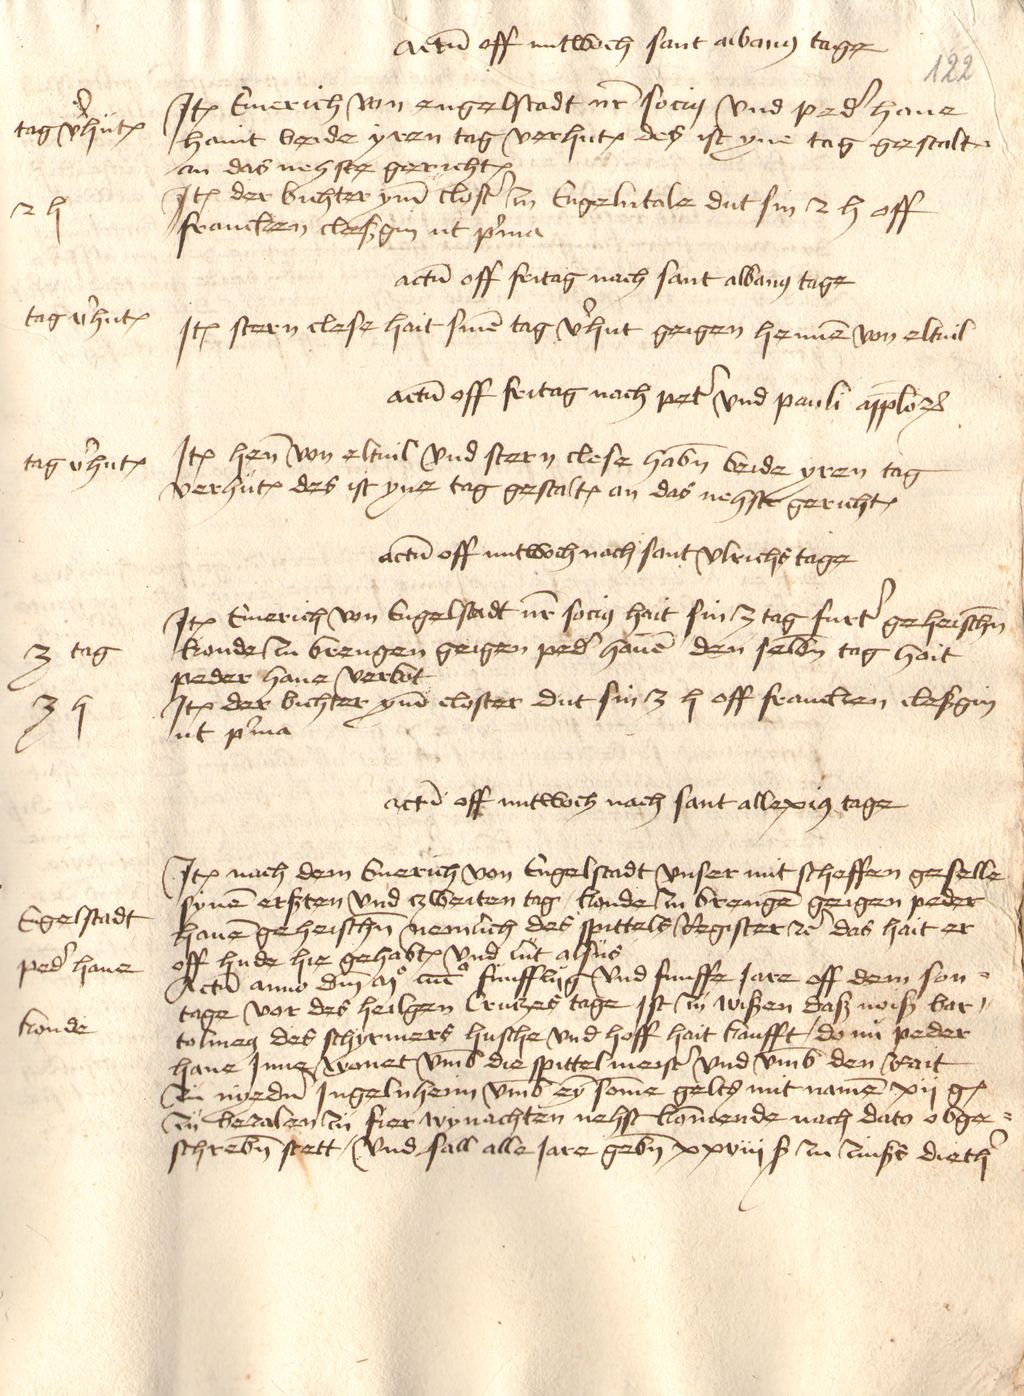 Actu͂ off mitwoch sant albanus tage
122
Jt͂ Emerich von engelstadt nr͂ socius vnd ped' hane
tag v'hut͂
haint beide yren tag verhut͂ des ist yne tag gestalt͂
an das nehste gericht͂
Jt͂ der bichter ym͂ clost' zu Engelntale dut sin 2 h off
2 h
francken cleßgin ut p'ma
actu͂ off fritag nach sant albanus tage
tag v'hut͂
Jt͂ stern clese hait sine͂ tag v'hut geigen henne͂ von eltuil
actu͂ off fritag noch pet' vnd pauli applo͂r
tag v'hut͂
Jt͂ hen͂ von eltuil vnd stern clese habn͂ beide yren tag
verhut͂ des ist yne tag gestalt͂ an das nehste gericht͂
actu͂ off mitwoch nach sant vlrichs tage
Jt͂ Emerich von Engelstadt nr͂ socius hait sin 3 tag furt' geheischn͂
3 tag
konde zu brengen geigen ped' hane͂ den selbn͂ tag hait
peder hane verbot
3 h
Jt͂ der bichter ym͂ closter dut sin 3 h off francken cleßgin
ut p'ma
actu͂ off mitwoch nach sant allexius tage
Jt͂ nach dem Emerich von Engelstadt vnser mit scheffen geselle
syne͂ ersten vnd zweiten tag konde zu brenge͂ geigen peder
Egelstadt
hane͂ geheischn͂ nemlich des spittels Register rc͂ das hait er
ped' hane
off hude hie gehabt͂ vnd lut alsus
Actu͂ anno dm͂ mº cccº funfftzig vnd funffe Jare off dem son =
tage vor des heilgen Crutzes tage Jst zu wißen daß
konde
tolmeg des schyrmers husche vnd hoff hait kaufft / do peder
hane Jnne wonet vmb die spittelmeist' vnd vmb den Rait
zu nyedn͂ Jngelnheim vmb ey͂ some͂ gelts mit name͂ xij g͂
zu bezalen zu fier wynachten nehst komende nach dato obge =
schrebn͂ stett / vnd sall alle Jare gebn͂ xxviij ß zu zinßs dieth'